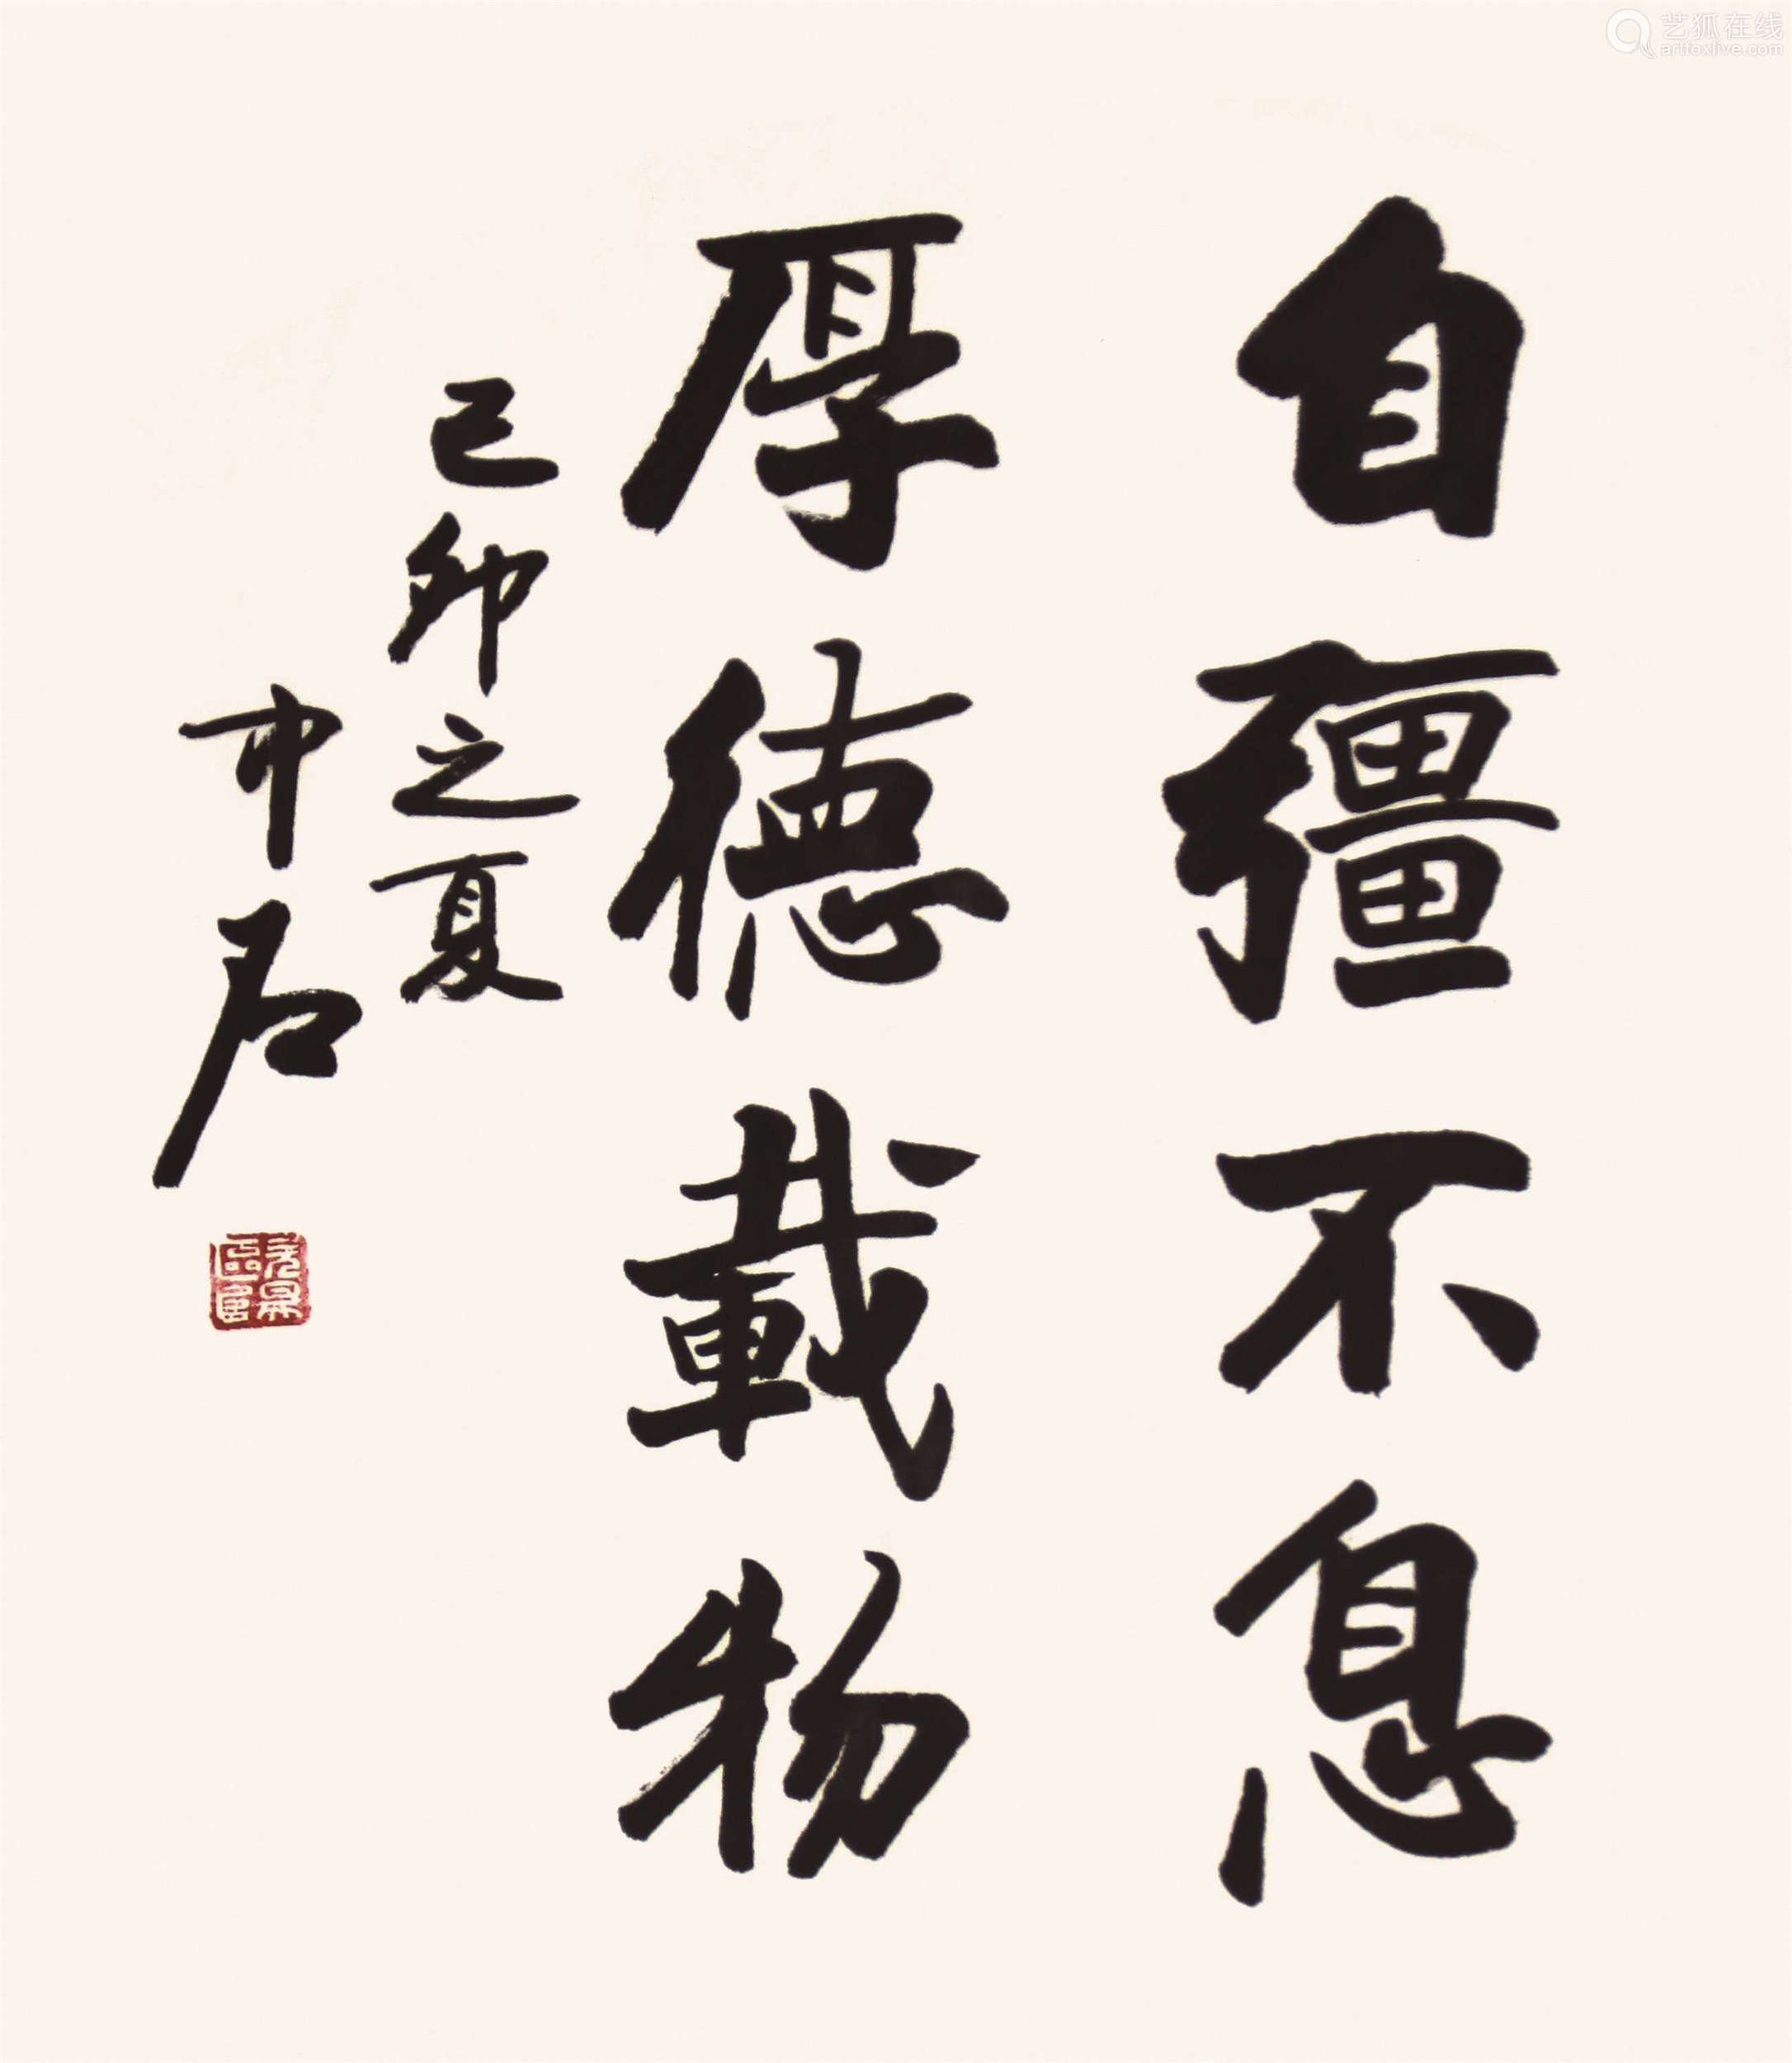 自彊不息
厚德載物
己卯之夏
中石
艺狐在线
artfoxlive.com